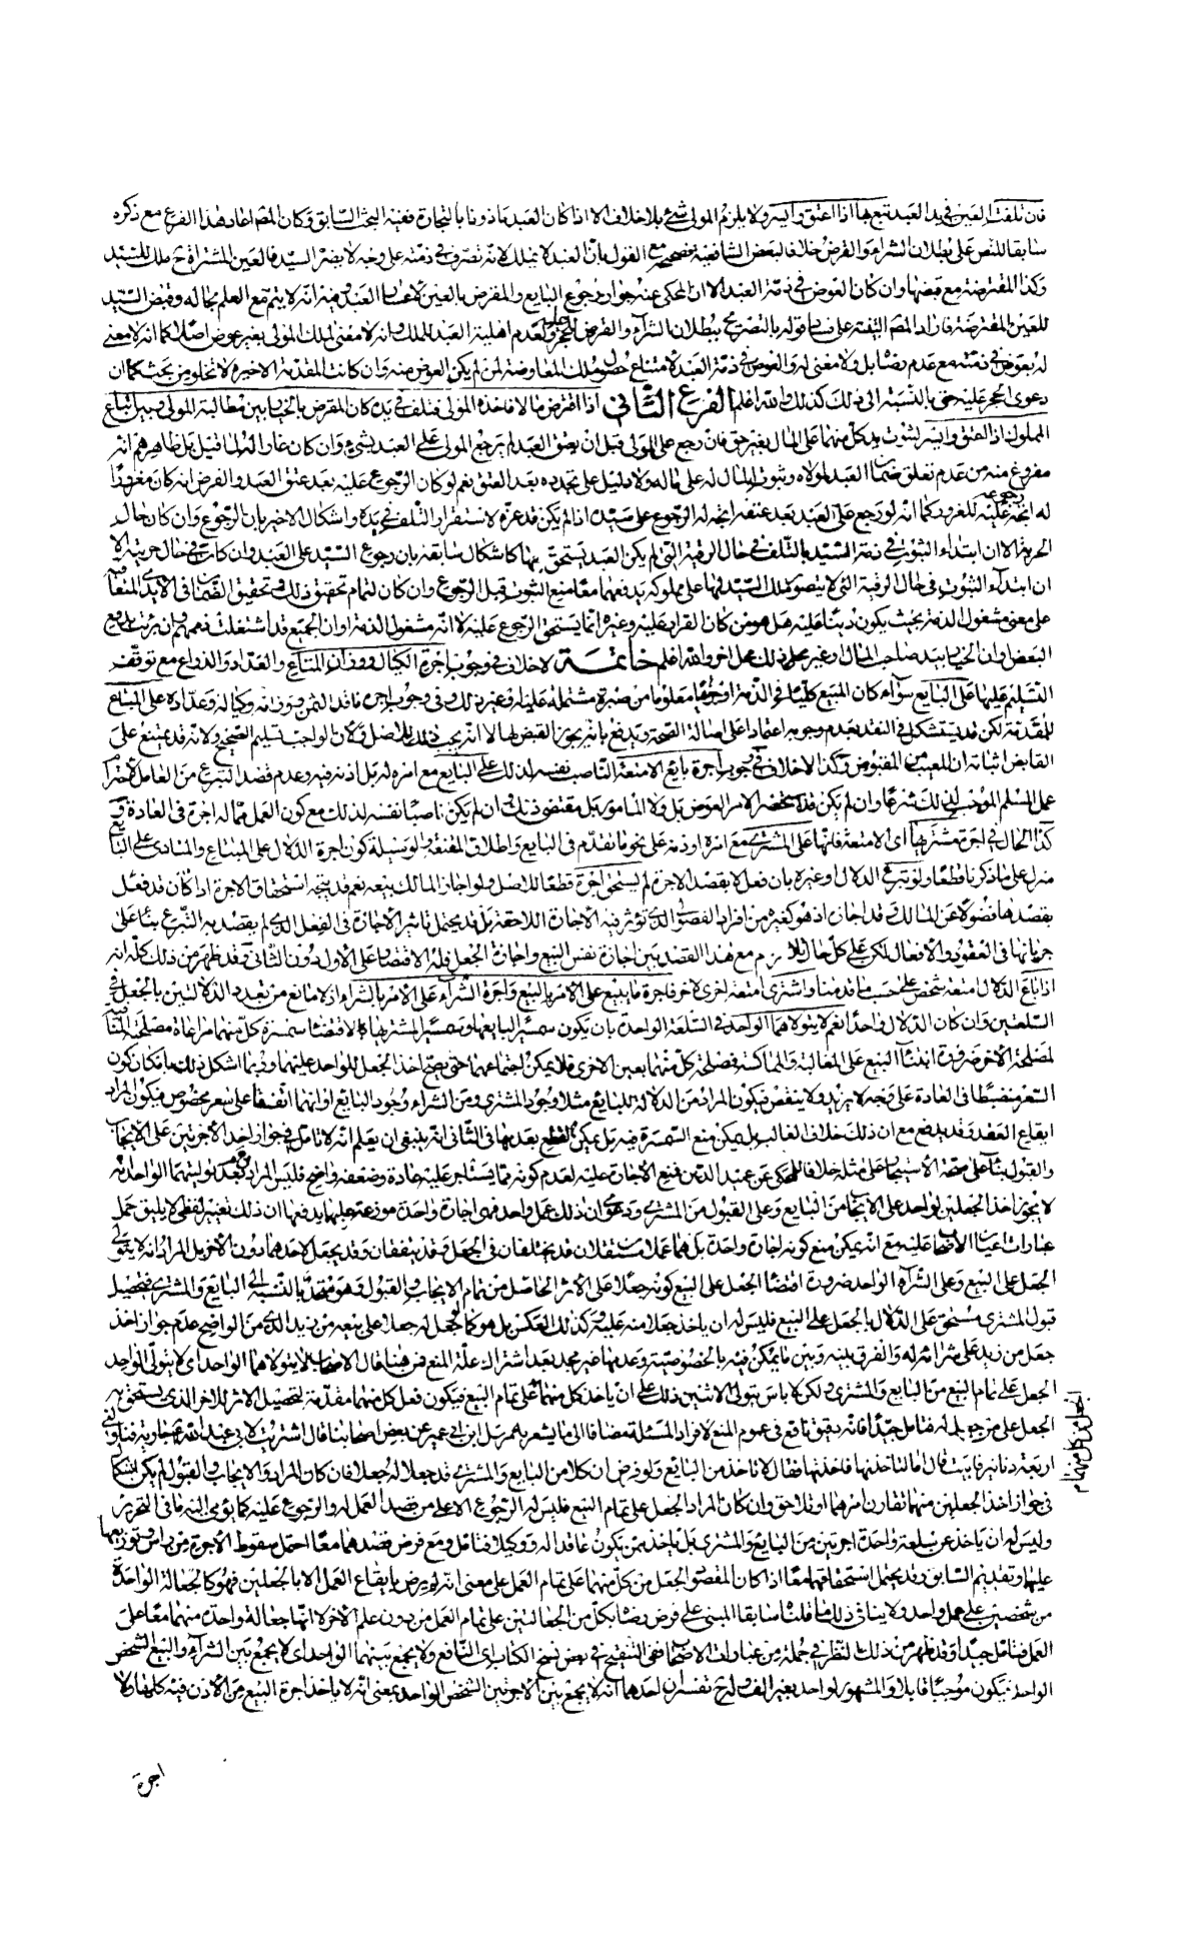 فان تلفت العين في يد العبد تبع بها اذا اعتق وايسر ولا يلزم المولى شيء بلا خلاف الا اذا كان العبد ماذونا بالتجارة ففيه البحث السابق وكان المصـ اعاد هذا الفرع مع ذكره
سابقا للنص على بطلان الشراء والقرض خلافا لبعض الشافعية مع القول بان العبد لا يملك لانه تصرف في ذمته على وجه لا يضر السيد فالعين المشتراة ح ملك للسيد
وكذا المقترضة مع قبضها وان كان العوض في ذمة العبد الا ان المحكى عنه جواز رجوع البايع والمقرض بالعين لاعسار العبد وفيه انه لا يتم مع العلم بحاله وقبض السيد
للعين المقترضة فاراد المصـ التنبيه على فساد قوله بالتصريح ببطلان الشراء والقرض للحجر ولعدم اهلية العبد للملك وانه لا معنى لملك المولى بغير عوض اصلا كما انه لا معنى
له بعوض في ذمته مع عدم رضاه بل ولا معنى له والعوض في ذمة العبد لامتناع حصول ملك المعاوضة لمن لم يكن العوض منه وان كانت المقدمة الاخيرة لا تخلو من بحث كما ان
دعوى الحجر عليه حتى بالنسبة الى ذلك كذلك والله اعلم الفرع الثاني اذا اقترض مالا فاخذه المولى فتلف في يده كان المقرض بالخيار بين مطالبة المولى وبين اتباع
المملوك اذا اعتق وايسر لثبوت يد كل منهما على المال بغير حق فان رجع على المولى قبل ان يعتق العبد لم يرجع المولى على العبد بشيء وان كان غارا له لما قيل بل ظاهرهم انه
مفروغ منه من عدم تعلق ضمان العبد لمولاه وثبوت المال له على ماله ولا دليل على تجدده بعد العتق نعم لو كان الرجوع عليه بعد عتق العبد والفرض انه كان مغرورا
له اتجه رجوعه عليه للغرور كما انه لو رجع على العبد بعد عتقه اتجه له الرجوع على سيده اذا لم يكن قد غره لاستقرار التلف في يده واشكال الاخير بان الرجوع وان كان حال
الحرية الا ان ابتداء الثبوت في ذمة السيد بالتلف في حال الرقية التي لم يكن العبد يستحق بها كاشكال سابقه بان رجوع السيد على العبد وان كان في حال حريته الا
ان ابتداء الثبوت في حال الرقية التي لا يتصور ملك السيد فيها على مملوكه يدفعهما معا منع الثبوت قبل الرجوع وان كان لتمام تحقيق ذلك وتحقيق الضمان في الايدي المتعاقبة
على معنى مشغول الذمة بحيث يكون دينا عليه هل هو من كان القرار عليه وغيره انما يستحق الرجوع عليه لا انه مشغول الذمة او ان الجميع قد اشتغلت ذممهم وان برئت بدفع
البعض وان الخيار بيد صاحب المال او غير ذلك محل اخر والله اعلم خاتمة لا خلاف في وجوب اجرة الكيال ووزان المتاع والعداد والذراع مع توقف
التسليم عليها على البايع سواء كان المبيع كليا في الذمة او جزءا معلوما من صبرة مشتملة عليه او غير ذلك وفي وجوب اجرة ناقد الثمن ووزانه وكياله وعداده على المبتاع
للمقدمة لكن قد يستشكل في النقد بعدم وجوبه اعتمادا على اصالة الصحة ويدفع بانه يجوز القبض بها لا انه يجب ذلك للاصل ولان الواجب تسليم الصحيح ولانه قد يمتنع على
القابض اثباته ان المعيب من المقبوض وكذا لا خلاف في وجوب اجرة بايع الامتعة الناصب نفسه لذلك على البايع مع امره له بل اذنه فيه وعدم قصد التبرع من العامل لاحترام
عمل المسلم الموجب لذلك شرعا وان لم يكن قد تحضر الامر العوض بل ولا المامور بل مقتضى ذلك وان لم يكن ناصبا نفسه لذلك مع كون العمل مما له اجرة في العادة و
كذا الحال في اجرة مشتريها اى الامتعة فانها على المشترى مع امره او اذنه على نحو ما تقدم في البايع واطلاق المقنعة والوسيلة كون اجرة الدلال على المبتاع والمنادى على البايع
منزل على ما ذكرنا قطعا ولو تبرع الدلال او غيره بان فعل لا بقصد الاجرة لم يستحق اجرة قطعا للاصل ولو اجاز المالك بيعه نعم قد يتجه استحقاق الاجرة اذا كان قد فعل
بقصدها فضولا عن المالك فاجاز اذ هو كغيره من افراد الفضولى الذي تؤثر فيه الاجازة اللاحقة بل قد يحتمل تاثير الاجازة في الفعل الذي لم يقصد به التبرع بناء على
جريانها في العقود والافعال لكن على كل حال لا تلازم مع هذا القصد بين اجازة نفس البيع واجازة الجعل فله الاقتصار على الاول دون الثاني وقد ظهر من ذلك كله انه
اذا باع الدلال امتعة شخص على حسب ما قدمنا واشترى امتعة اخرى لاخر فاجرة ما يبيع على الامر بالبيع واجرة الشراء على الامر بالشراء اذ لا مانع من تعدد الدلالتين بالجعل في
السلعتين وان كان الدلال واحدا نعم لا يتولاهما الواحد في السلعة الواحدة بان يكون سمسارا لبايعها وسمسارا لمشتريها لاقتضاء سمسرة كل منهما مراعاة مصلحة المنافية
لمصلحة الاخر ضرورة ابتناء البيع على المغالبة والمماكسة فمصلحة كل منهما بعين الاخرى فلا يمكن اجتماعهما حتى يصح اخذ الجعل للواحد عليهما وربما اشكل ذلك بامكان كون
السعر منضبطا في العادة على وجه لا يزيد ولا ينقص فيكون المراد من الدلالة للبايع مثلا وجود المشتري ومن الشراء وجود البايع او انهما اتفقا على سعر مخصوص فيكون المراد
ايقاع العقد وقد يدفع مع ان ذلك خلاف الغالب بل يمكن منع السمسرة فيه بل يمكن القطع بعدمها في الثاني انه ينبغي ان يعلم انه لا تامل في جواز اخذ الاجرتين على الايجاب
والقبول بناء على صحة الاستيجار على مثله خلافا للمحكى عن عميد الدين فمنع الاجارة عليه لعدم كونه مما يستاجر عليه عادة وضعفه واضح فليس المراد بعدم توليتهما الواحد انه
لا يجوز اخذ الجعلين لواحد على الايجاب من البايع وعلى القبول من المشترى ودعوى ان ذلك عمل واحد فهي اجارة واحدة موزعة عليهما يدفعها ان ذلك تعبير لفظي لا يليق حمل
عبارات اعيان الاصحاب عليه مع انه يمكن منع كونه اجارة واحدة بل هما عملان مستقلان قد يختلفان في الجعل وقد يتفقان وقد يجعل لاحدهما دون الاخر بل المراد انه لا يتولى
الجعل على البيع وعلى الشراء الواحد ضرورة اقتضاء الجعل على البيع كونه جعلا على الاثر الحاصل من تمام الايجاب والقبول وهو متحد بالنسبة الى البايع والمشترى فتحصيل
قبول المشترى مستحق على الدلال بالجعل على البيع فليس له ان ياخذ جعلا منه عليه وكذلك العكس بل هو كما لو جعل له جعلا على بيعه من زيد الذي من الواضح عدم جواز اخذ
جعل من زيد على شرائه له والفرق بينه وبين ما يمكن فيه بالخصوصية وعدمها غير مجد بعد اشتراك علة المنع فمن هنا قال الاصحاب لا يتولاهما الواحد اى لا يتولى الواحد
الجعل على تمام البيع من البايع والمشترى ولكن لا باس بتولى الاثنين ذلك على ان ياخذ كل منهما على تمام البيع فيكون فعل كل منهما مقدمة لتحصيل الاثر للاخر الذي يستحق به
الجعل على من جعل له فتامل جيدا فانه دقيق نافع في عموم المنع لافراد المسئلة مضافا الى ما يشعر به مرسل ابن ابي عمير عن بعض اصحابنا قال اشتريت لابي عبد الله جارية فناولني
اربعة دنانير فابيت قال فقال لتاخذنها فاخذتها فقال لا تاخذ من البايع ولو فرض ان كلا من البايع والمشترى قد جعلا له جعلا فان كان المراد الايجاب والقبول لم يكن اشكال
في جواز اخذ الجعلين منهما تقارن امرهما او تلاحق وان كان المراد الجعل على تمام البيع فليس له الرجوع الا على من قصد العمل له والرجوع عليه كما يؤمى اليه ما في التحرير
وليس له ان ياخذ عن سلعة واحدة اجرتين من البايع والمشترى بل ياخذ ممن يكون عاقدا له ووكيلا فتامل ومع فرض قصدهما معا احتمل سقوط الاجرة من راس وتوزيعها
عليهما وتقديم السابق وقد يحتمل استحقاقهما معا اذا كان المقصود الجعل من كل منهما على تمام العمل على معنى انه لم يرض بايقاع العمل الا بالجعلين فهو كالجعالة الواحدة
من شخصين على عمل واحد ولا ينافي ذلك ما قلناه سابقا المبنى على فرض رضا بكل من الجعالتين على تمام العمل من دون علم الاخر لا انها جعالة واحدة منهما معا على
العمل فتامل جيدا وقد ظهر من ذلك النظر في جملة من عبارات الاصحاب ففي التنقيح في بعض نسخ الكتاب اى النافع ولا يجمع بينهما الواحد اى لا يجمع بين الشراء والبيع لشخص
الواحد فيكون موجبا قابلا والمشهور لواحد بغير الف ولام تفسير لاحدهما انه لا يجمع بين الاجرتين الشخص الواحد بمعنى انه لا ياخذ اجرة البيع من الاذن فيه كلها ولا
الجعل من كل منهما على تمام
اجرة